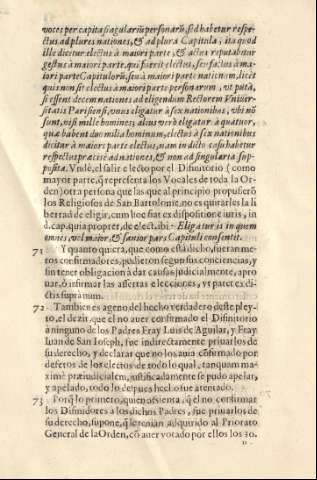 voces per capita singulariũ personarũ, sed habetur respe-
ctus ad plures nationes, & ad plura Capitula, ita quod
ille dicitur electus à maiori parte, & actus reputabitur
gestus à maiori parte, qui fuerit electus, seu factus à ma-
iori parte Capitulorũ, seu à maiori parte nationum, licèt
quis non sit electus à maiori parte personarum, vt putà,
si essent decem nationes ad eligendum Rectorem Vniuer-
sitatis Parisiensi, vnus eligatur à sex nationibus, vbi nõ
sunt, nisi mille homines; alius verò eligatur à quatuor,
quæ habent duo milia hominum, electus à sex nationibus
dicitur à maiori parte electus, nam in dicto casu habetur
respectus præcisè ad nationes, & non ad singularia sup-
posita. Vnde, el salir electo por el Difinitorio ( como
mayor parte, q̃ representa los Vocales de toda la Or-
den) otra persona que las que al principio propusierõ
los Religiosos de San Bartolome, no es quitarles la li
bertad de eligir, cum hoc fiat ex dispositione iuris, in
d. cap. quia propter, de elect. ibi: Eligatur is in quem
omnes, vel maior, & sanior pars Capituli consentit.
71 Y quanto quiera, que como està dicho, fueran me-
ros confirmadores, pudieron segun sus conciencias, y
sin tener obligacion à dar causas judicialmente, apro
uar, ò infirmar las assertas elecciones, vt patet ex di-
ctis supra num.
72 Tambien es ageno del hecho verdadero deste pley-
to, el dezir, que el no auer confirmado el Difinitorio
à ninguno de los Padres Fray Luis de Aguilar, y Fray
Iuan de San Ioseph, fue indirectamente priuarlos de
su derecho, y declarar que no los auia cõfirmado por
defetos de los electos de todo lo qual, tanquam ma-
ximè præiudicialem, iustificadamente se pudo apelar,
y apelado, todo lo despues hecho fue atentado.
73 Porq̃ lo primero, quien assienta, q̃ el no confirmar
los Difinidores à los dichos Padres, fue priuarlos de
su derecho, supone, q̃ le tenian adquirido al Priorato
General de la Orden, cõ auer votado por ellos los 30.